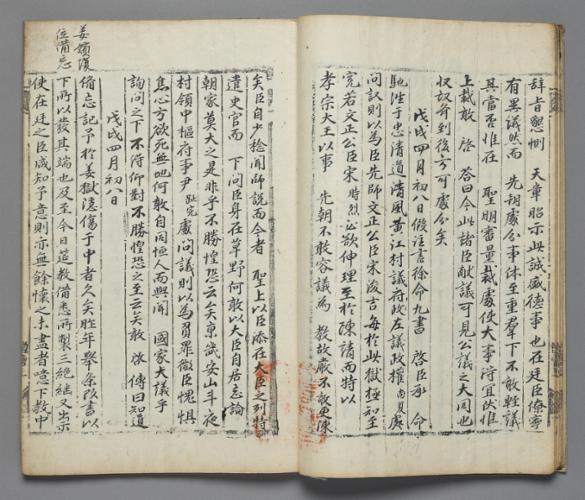 辭旨懇惻 天章昭示此誠盛德事也在廷臣僚寧
有異議然而 先朝處分事体至重羣下不敢輕議
其當否惟在 聖明審量裁處使大事得宜伏惟
上裁敢 啓 答曰今此諸臣獻議可見公議之大同也
収到後方可處分矣
戊戌四月初八日假注書徐命九書 啓臣承 命
馳往于忠清道清風黃江村議府政左議政權尙夏處
問議則以為臣先師文正公臣宋浚吉每於此獄極知至
寃若文正公臣宋時烈必欲伸理至於陳請而特以
孝宗大王以事 先朝不敢容議為 教故厥不敢更陳
矣臣自少稔聞師說而今者 聖上以臣添在大臣之列特
遣史官而 下問臣身在草野何敢以大臣自居忘論
朝家莫大之是非乎不勝惶恐云云矣京畿安山斗夜
村領中樞府事尹趾完處問議則以為負罪微臣愧惧
焦心方欲死無地何敢自同恒人而與聞 國家大議乎
詢問之下不得仰對不勝惶恐之至云矣敢 啓 傳曰知道
戊戌四月初八日
備忘記予於姜獄隱傷于中者久矣昨年舉条改書以
下所以發其端也及至今日追教備悉所製三絶繼又出示
使在廷之臣咸知予意則亦無餘懷之未盡者噫下教中
姜嬪復
位備忘